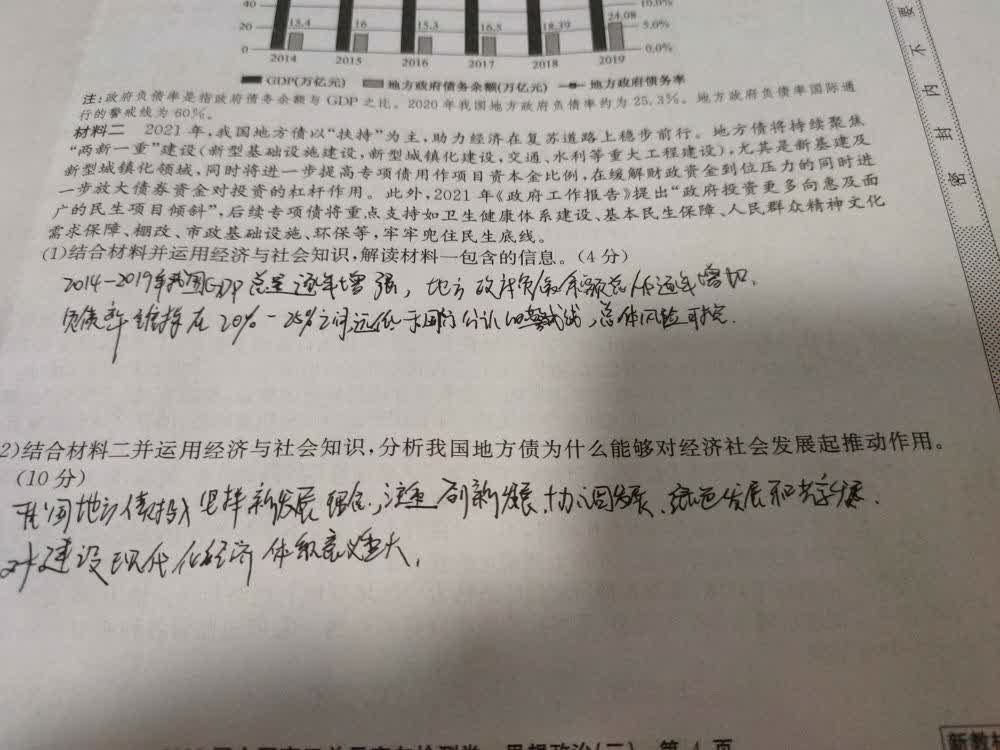 40
10.0%
20
15.4
16
15.3
16.5
18.39
24.08
5.0%
0
0.0%
2014 2015 2016 2017 2018 2019
GDP(万亿元) 地方政府债务余额(万亿元) 地方政府债务率
注:政府负债率是指政府债务余额与GDP之比。2020年我国地方政府负债率约为25.3%。地方政府负债率国际通
行的警戒线为60%。
材料二 2021年,我国地方债以“扶持”为主,助力经济在复苏道路上稳步前行。地方债将持续聚焦
“两新一重”建设(新型基础设施建设,新型城镇化建设,交通、水利等重大工程建设),尤其是新基建及
新型城镇化领域,同时将进一步提高专项债用作项目资本金比例,在缓解财政资金到位压力的同时进
一步放大债券资金对投资的杠杆作用。此外,2021年《政府工作报告》提出“政府投资更多向惠及面
广的民生项目倾斜”,后续专项债将重点支持如卫生健康体系建设、基本民生保障、人民群众精神文化
需求保障、棚改、市政基础设施、环保等,牢牢兜住民生底线。
(1)结合材料并运用经济与社会知识,解读材料一包含的信息。(4分)
2014-2019年我国GDP总量逐年增强,地方政府负债余额总体逐年增加.
负债率维持在20%-25%之间远低于国际公认的警戒线,总体风险可控.
2)结合材料二并运用经济与社会知识,分析我国地方债为什么能够对经济社会发展起推动作用。
(10分)
我国地方债投入坚持新发展理念,注重创新发展、协调发展、绿色发展和共享发展.
对建设现代化经济体系意义重大.
密 封 内 不 要
思想政治(二) 第4页
新教材